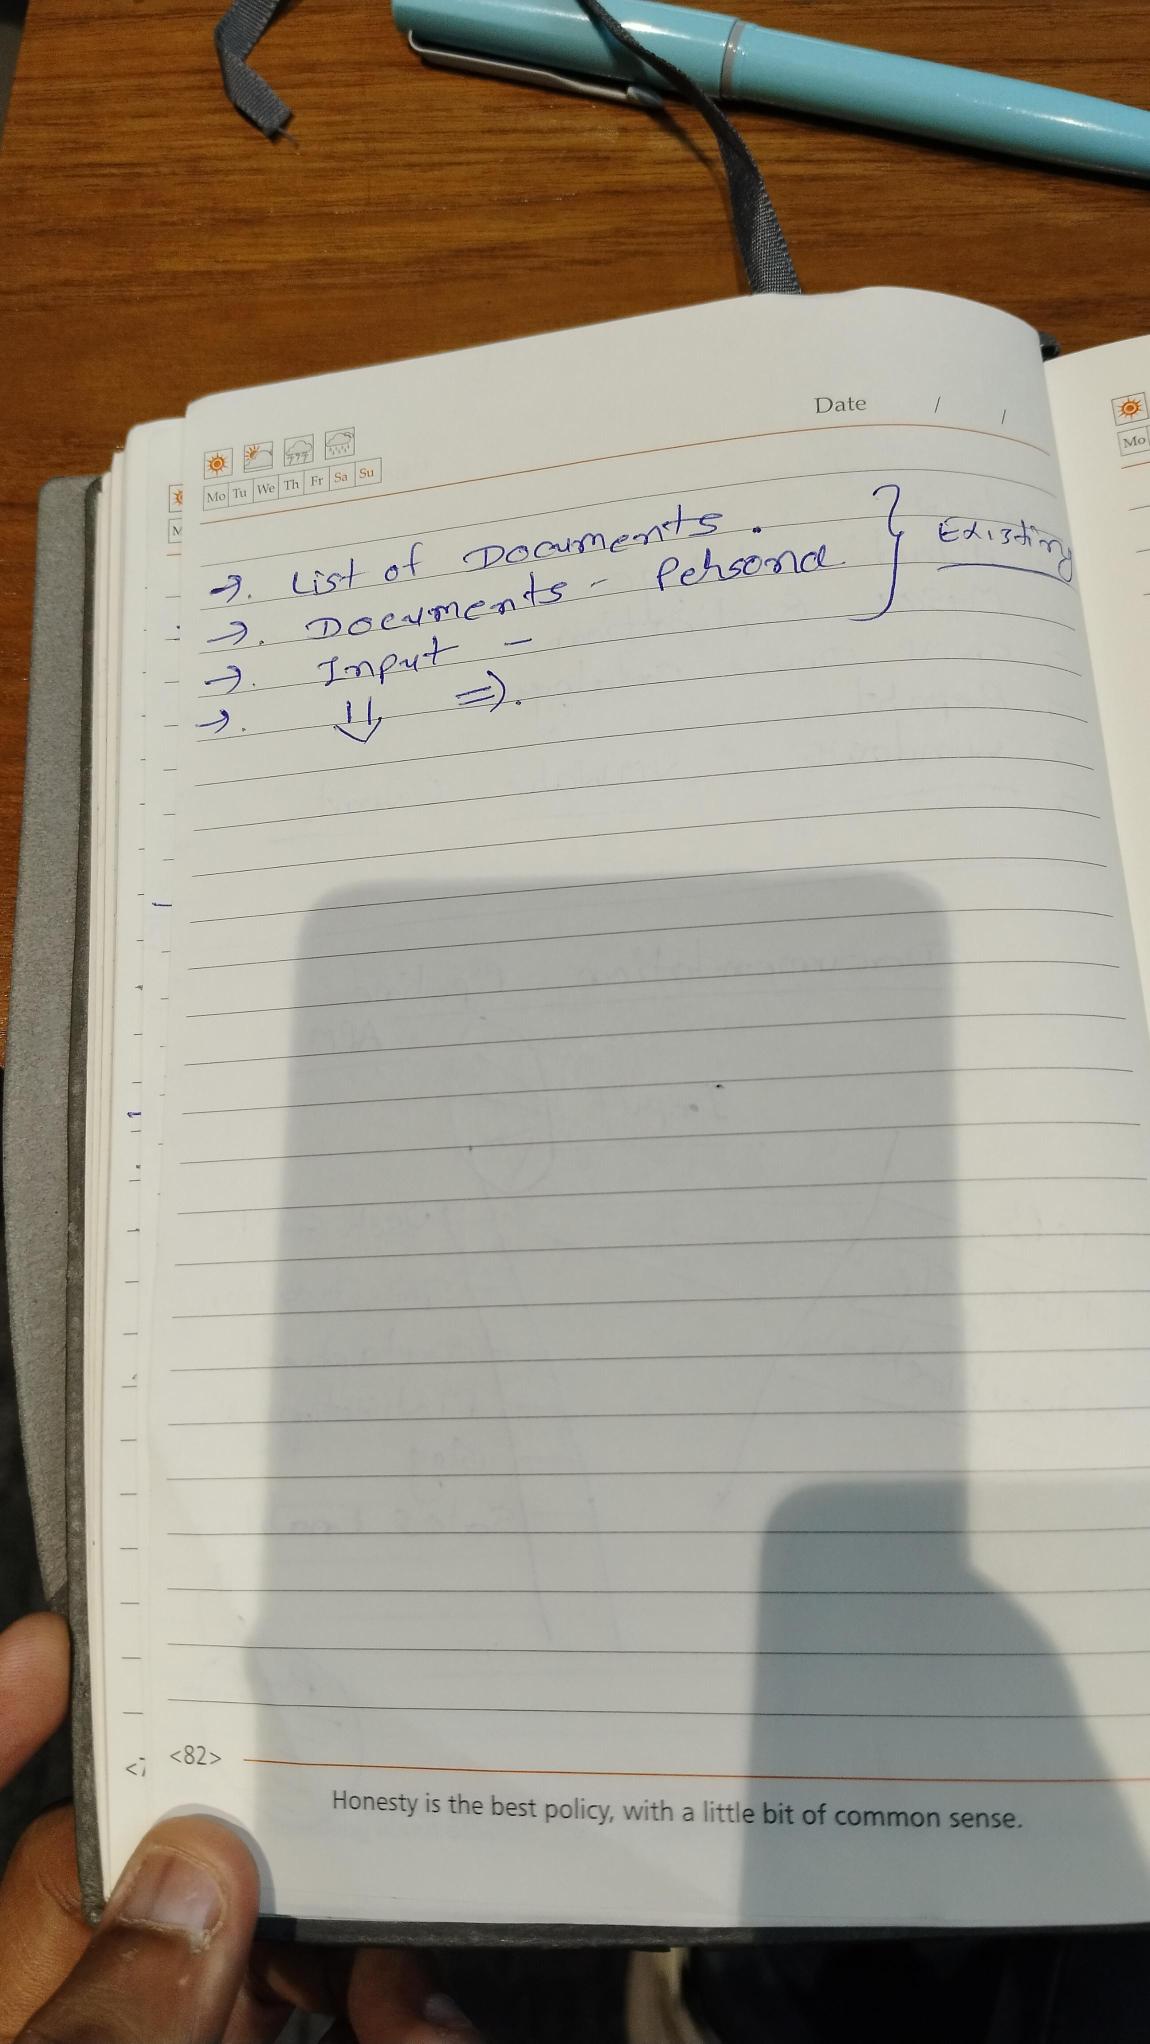 Date / /
Mo Tu We Th Fr Sa Su
Mo
→. List of Documents.
→. Documents - Persona } Existing
→. Input -
→. ⇓ ⇒.
<82>
Honesty is the best policy, with a little bit of common sense.